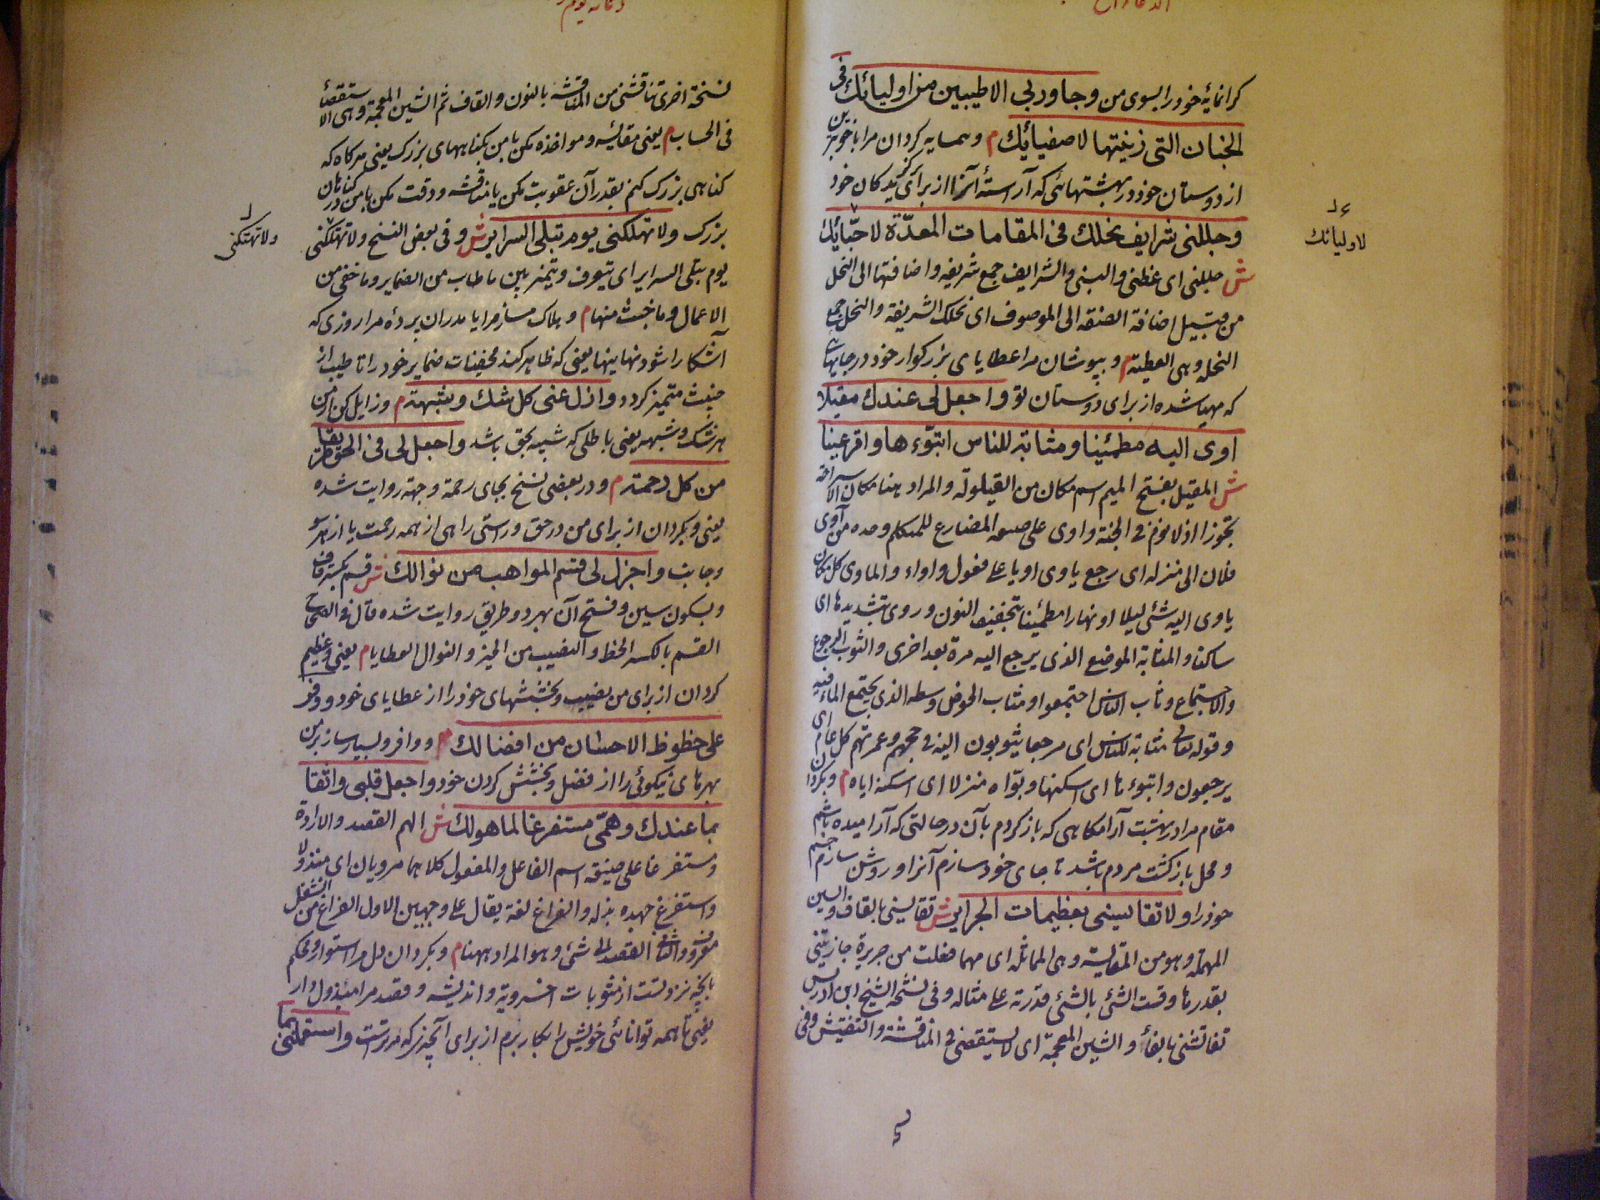 کرانمایهٔ خود را بسوی من وجاور بی الاطیبین من اولیائك فی
الجنان التی زینتها لاصفیائك م وهمسایه کردان مرا با خوبترین
از دوستان خود در بهشتهائی که آراستهٔ آنرا از برای کزیدکان خود
وجللنی شرایف نحلك فی المقامات المعدّة لاحبّائك
لاولیائك
ش جللنی ای غطنی والبسنی والشرایف جمع شریفه واضافتها الی النحل
من قبیل اضافة الصفة الی الموصوف ای نحلك الشریفة والنحل جمع
النحلة وهی العطیة م وبپوشان مرا عطایای بزرکوار خود در جایهائی
که مهیا شده از برای دوستان تو واجعل لی عندك مقیلا
اوی الیه مطمئنا ومثابة للناس اتبوّءها واقر عینا
ش المقیل بفتح المیم اسم مکان من القیلولة والمراد هنا مکان الاستراحة
تجوزا اذ لا نوم فی الجنة واوی علی صیغة المضارع للمتکلم وحده من آوی
فلان الی منزله ای رجع یاوی اویا علی فعول واواء والماوی کل مکان
یاوی الیه شئ لیلا او نهارا مطمئنا بتخفیف النون وروی بتشدیدها ای
ساکنا والمثابة الموضع الذی یرجع الیه مرة بعد اخری والثوب الرجوع
والاجتماع وثاب الناس اجتمعوا ومثاب الحوض وسطه الذی یجتمع الماء فیه
وقوله تعالی مثابة للناس ای مرجعا یثوبون الیه فی حجهم وعمرتهم کل عام ای
یرجعون واتبوءها ای اسکنها وبوّاه منزلا ای اسکنه ایاه م وبکردان
مقام مرا در بهشت آرامکاهی که باز کردم بآن در حالتی که آرامیده باشم
ومحل بازکشت مردم باشد تا جای خود سازم آنرا وروشن سازم چشم
خود را ولا تقایسنی بعظیمات الجرایر ش تقایسنی بالقاف والسین
المهملة وهو من المقایسة وهی المماثلة ای مهما فعلت من جریرة جازیتنی
بقدرها وقست الشئ بالشئ قدرته علی مثاله وفی نسخة الشیخ ابن ادریس
تفاتشنی بالفاء والشین المعجمة ای لا تستقصی فی المناقشة والتفتیش وفی
نسخة اخری تناقشنی من المناقشة بالنون والقاف ثم الشین المعجمة وهی الاستقصاء
فی الحساب م یعنی مقایسه ومواخذه مکن با من بکناههای بزرك یعنی هر کاه که
کناهی بزرك کنم بقدر آن عقوبت مکن یا مناقشه ودقت مکن با من در کناهان
بزرك ولا تهلکنی یوم تبلی السرایر ش وفی بعض النسخ ولا تهتکنی
ولا تهتکنی
یوم تبلی السرایر ای تتعرف ویتمیز بین ما طاب من الضمایر وما خفی من
الاعمال وما خبث منها م وهلاك مساز مرا
آشکارا شود نهانیها یعنی که ظاهر کند مخفیات ضمایر خود را تا طیب از
خبیث متمیز کردد وازل عنی کل شك وشبهة م وزایل کن از من
هر شك وشبهه یعنی باطلی که شبیه بحق باشد واجعل لی فی الحق طریقا
من کل رحمة م ودر بعضی نسخ بجای رحمة وجهة روایت شده
یعنی وبکردان از برای من در حق ورستی راهی از همه رحمت یا از هر سو
وجانب واجزل لی قسم المواهب من نوالك ش قسم بکسر قاف
وبسکون سین وفتح آن بهر دو طریق روایت شده قال فی الصحاح
القسم بالکسر الحظ والنصیب من الخیر والنوال العطایا م یعنی وعظیم
کردان از برای من نصیب وبخششهای خود را از عطایای خود ووفر
علی حظوظ الاحسان من افضالك م ووافر وبسیار ساز بر من
بهرهای نیکوئی را از فضل وبخشش کردن خود واجعل قلبی واثقا
بما عندك وهمّی مستفرغا لما هو لك ش الهم القصد والارادة
ومستفرغا علی صیغة اسم الفاعل والمفعول کلاهما مرویان ای مبذولا
واستفرغ جهده بذله والفراغ لغة یقال علی وجهین الاول الفراغ من الشغل
معروف والثانی القصد الی شئ وهو المراد ههنا م وبکردان دل مرا استوار ومحکم
بآنچه نزد تست از مثوبات اخرویه واندیشه وقصد مرا مبذول دار
یعنی تا همه توانائی خویش را بکار برم از برای آنچیز که مر تر است واستعملنی بما